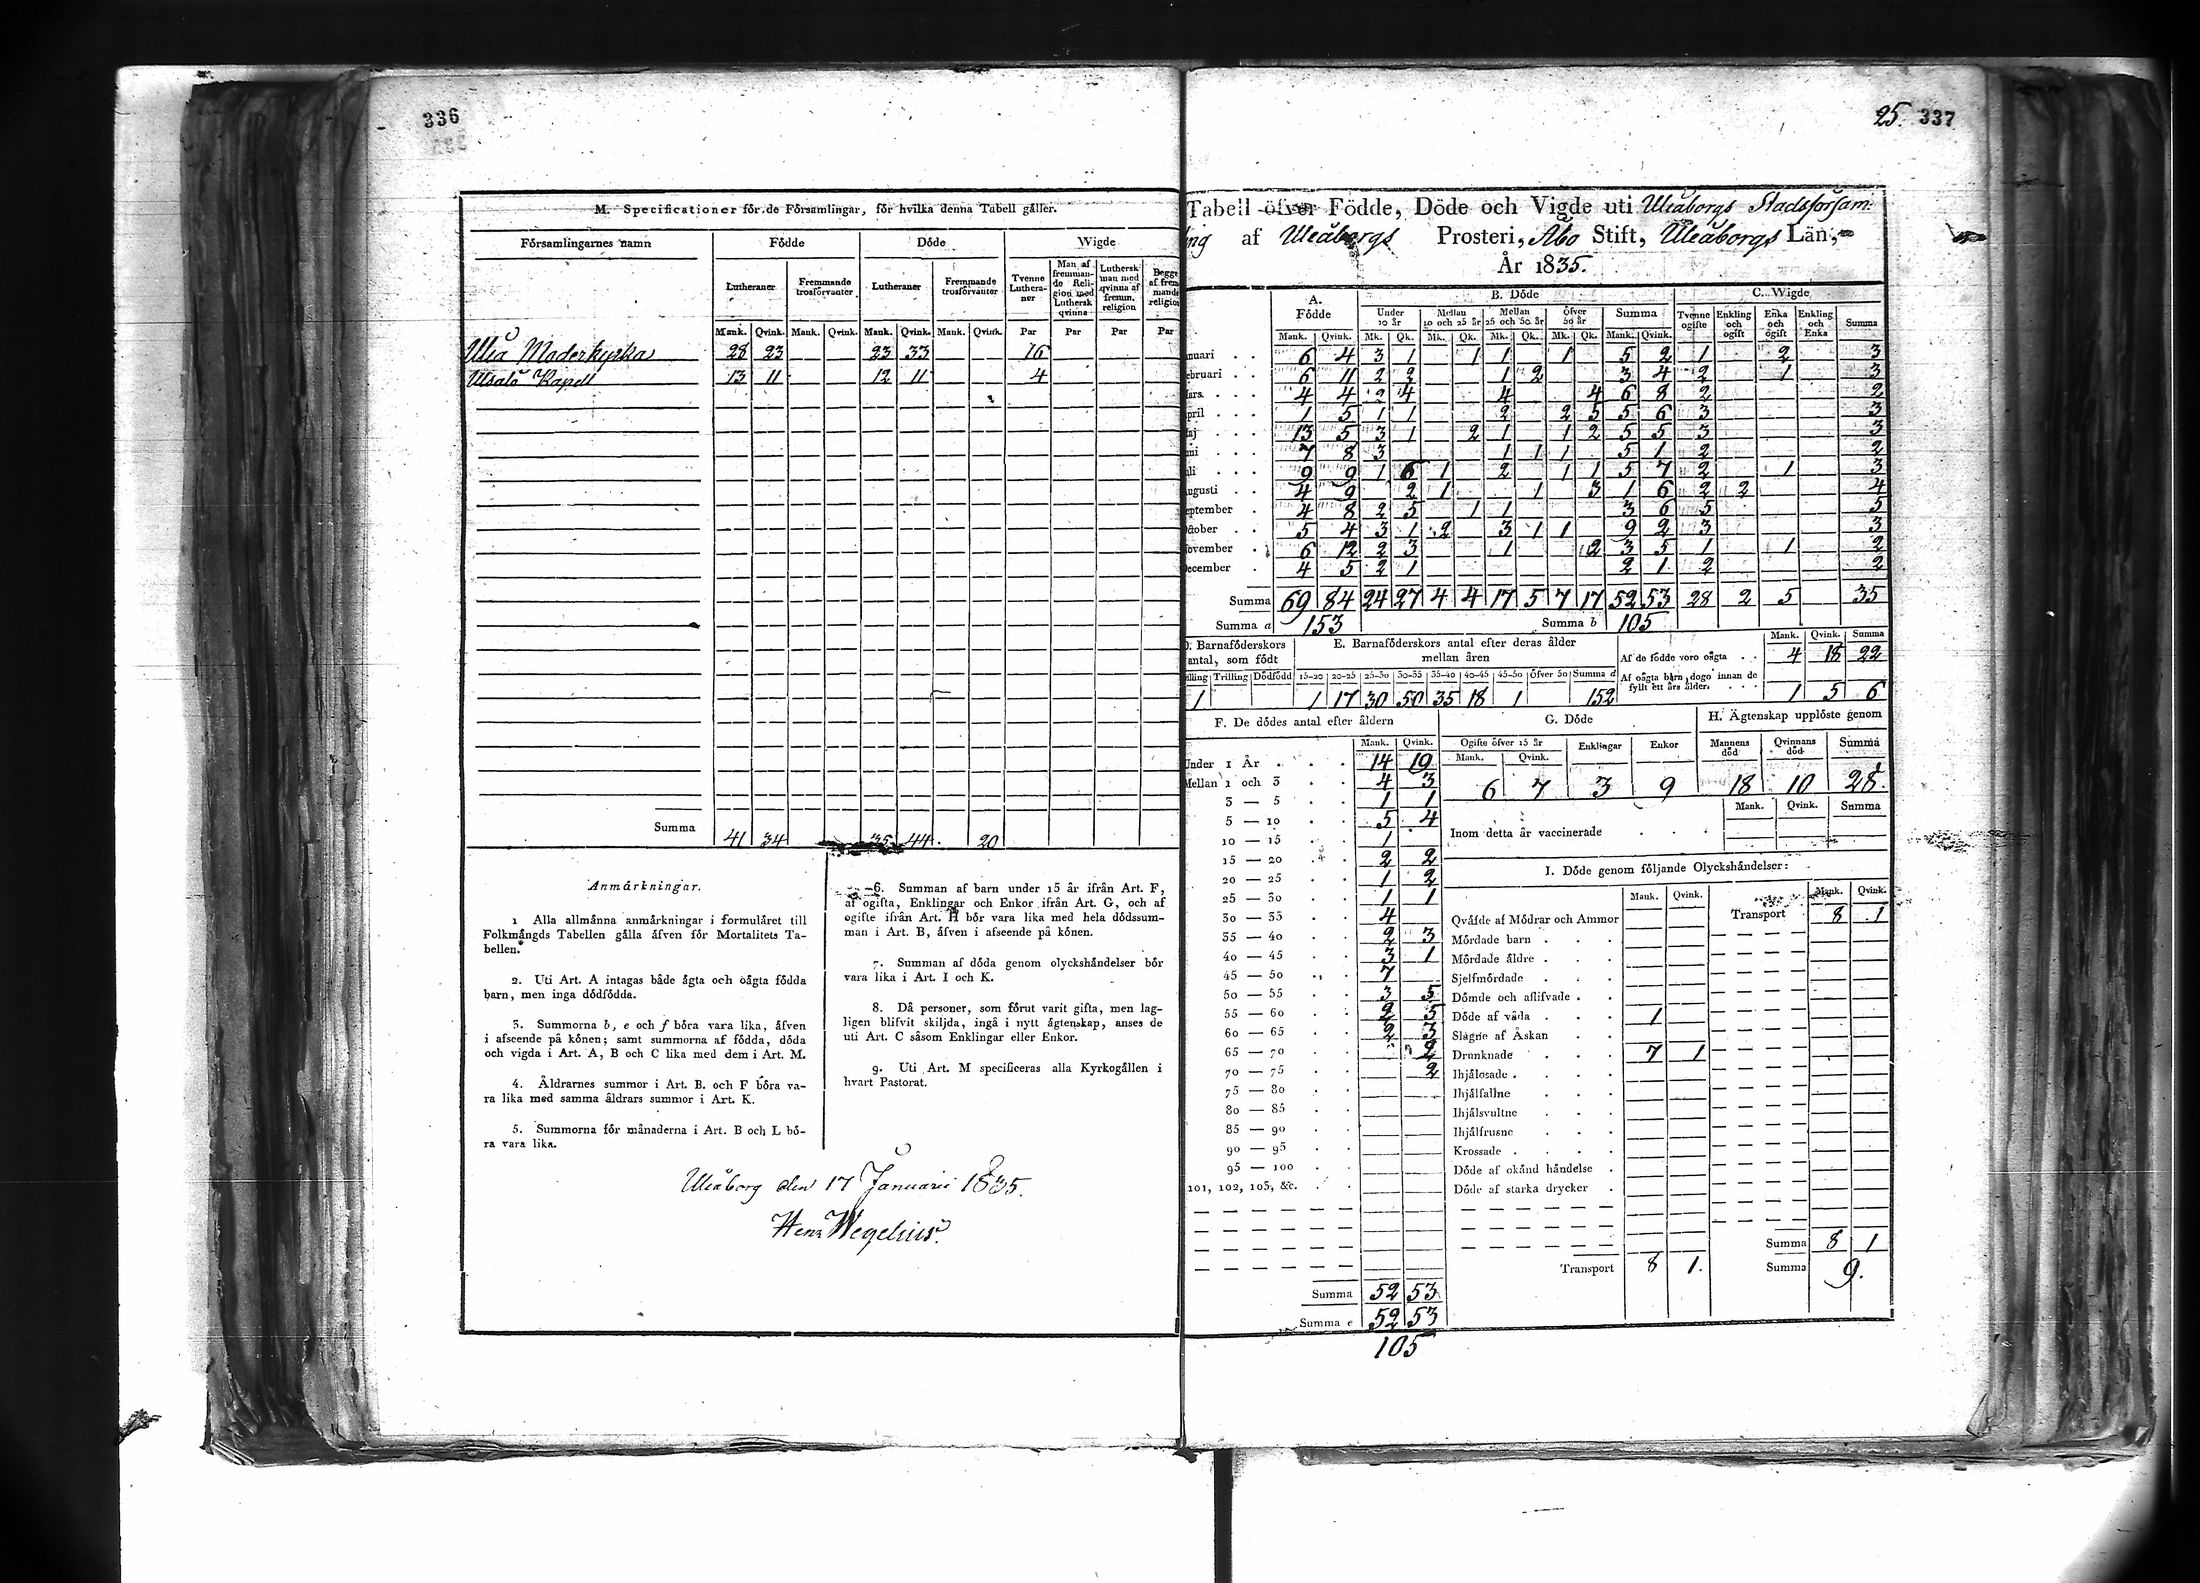 336
M. Specificationer för de Församlingar, för hvilka denna Tabell gäller.
Församlingarnes namn Födde Döde Wigde
Lutheraner Fremmande trosförvanter Lutheraner Fremmande trosförvanter Tvenne Lutheraner Man af fremmande Religion med Luthersk qvinna Luthersk man med qvinna af fremm. religion Begge af fremmande religion
Mank. Qvink. Mank. Qvink. Mank. Qvink. Mank. Qvink. Par Par Par Par
Uleå Moderkyrka 28 23 23 33 16
Uleålo Kapell 13 11 12 11 4
Summa 41 34 35 44 20
Anmärkningar.
1 Alla allmänna anmärkningar i formuläret till
Folkmängds Tabellen gälla äfven för Mortalitets Ta-
bellen.
2. Uti Art. A intagas både ägta och oägta födda
barn, men inga dödfödda.
3. Summorna b, e och f böra vara lika, äfven
i afseende på könen; samt summorna af födda, döda
och vigda i Art. A, B och C lika med dem i Art. M.
4. Åldrarnes summor i Art. B. och F böra va-
ra lika med samma åldrars summor i Art. K.
5. Summorna för månaderna i Art. B och L bö-
ra vara lika.
6. Summan af barn under 15 år ifrån Art. F,
af ogifta, Enklingar och Enkor ifrån Art. G, och af
ogifte ifrån Art. H bör vara lika med hela dödssum-
man i Art. B, äfven i afseende på könen.
7. Summan af döda genom olyckshändelser bör
vara lika i Art. I och K.
8. Då personer, som förut varit gifta, men lag-
ligen blifvit skiljda, ingå i nytt ägtenskap, anses de
uti Art. C såsom Enklingar eller Enkor.
9. Uti Art. M specificeras alla Kyrkogällen i
hvart Pastorat.
Uleåborg den 17 Januarii 1835.
Henr Wegelius.
25. 337
Tabell öfver Födde, Döde och Vigde uti Uleåborgs Stadsförsam-
ing af Uleåborgs Prosteri, Åbo Stift, Uleåborgs Län,
År 1835.
A. Födde B. Döde C. Wigde
Under 10 år Mellan 10 och 25 år Mellan 25 och 50 år Öfver 50 år Summa Tvenne ogifte Enkling och ogift Enka och ogift Enkling och Enka Summa
Mank. Qvink. Mk. Qk. Mk. Qk. Mk. Qk. Mk. Qk. Mank. Qvink.
nuari 6 4 3 1 1 1 1 5 2 1 2 3
ebruari 6 11 2 2 1 2 3 4 2 1 3
ars 4 4 2 4 4 4 6 8 2 2
pril 1 5 1 1 2 2 5 5 6 3 3
aj 13 5 3 1 2 1 1 2 5 5 3 3
ni 7 8 3 1 1 1 5 1 2 2
li 9 9 1 6 1 2 1 1 5 7 2 1 3
ugusti 4 9 2 1 1 3 1 6 2 2 4
eptember 4 8 2 5 1 1 3 6 5 5
October 5 4 3 1 2 3 1 1 9 2 3 3
ovember 6 12 2 3 1 2 3 5 1 1 2
ecember 4 5 2 1 2 1 2 2
Summa 69 84 24 27 4 4 17 5 7 17 52 53 28 2 5 35
Summa a 153 Summa b 105
D. Barnaföderskors antal, som födt
illing Trilling Dödfödd
1
E. Barnaföderskors antal efter deras ålder mellan åren
15-20 20-25 25-30 30-35 35-40 40-45 45-50 Öfver 50 Summa d
1 17 30 50 35 18 1 152
Mank. Qvink. Summa
Af de födde voro oägta 4 18 22
Af oägta barn dogo innan de fyllt ett års ålder 1 5 6
F. De dödes antal efter åldern
Mank. Qvink.
Under 1 År 14 19
Mellan 1 och 3 4 3
3 — 5 1 1
5 — 10 5 4
10 — 15 1
15 — 20 2 2
20 — 25 1 2
25 — 30 1 1
30 — 35 4
35 — 40 2 3
40 — 45 3 1
45 — 50 7
50 — 55 3 5
55 — 60 2 5
60 — 65 2 3
65 — 70 2
70 — 75 2
75 — 80
80 — 85
85 — 90
90 — 95
95 — 100
101, 102, 103, &c.
Summa 52 53
Summa e 52 53
105
G. Döde
Ogifte öfver 15 år Enklingar Enkor
Mank. Qvink.
6 7 3 9
H. Ägtenskap upplöste genom
Mannens död Qvinnans död Summa
18 10 28.
Mank. Qvink. Summa
Inom detta år vaccinerade
I. Döde genom följande Olyckshändelser:
Mank. Qvink. Mank. Qvink.
Qväfde af Mödrar och Ammor Transport 8 1
Mördade barn
Mördade äldre
Sjelfmördade
Dömde och aflifvade
Döde af våda 1
Slagne af Åskan
Drunknade 7 1
Ihjälosade
Ihjälfallne
Ihjälsvultne
Ihjälfrusne
Krossade
Döde af okänd händelse
Döde af starka drycker
Summa 8 1
Transport 8 1. Summa 9.